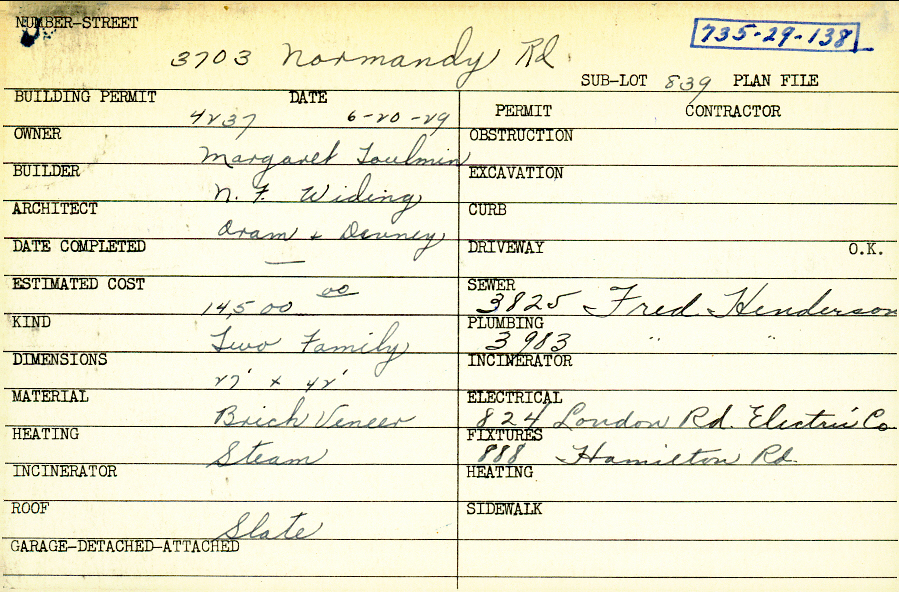 NUMBER-STREET
735-29-138
3703 Normandy Rd
SUB-LOT 839 PLAN FILE
BUILDING PERMIT DATE
4237 6-20-29
PERMIT CONTRACTOR
OWNER Margaret Toulmin
OBSTRUCTION
BUILDER N. F. Widing
EXCAVATION
ARCHITECT Oram & Downey
CURB
DATE COMPLETED —
DRIVEWAY O.K.
ESTIMATED COST 14,500 00
SEWER 3825 Fred Henderson
KIND Two Family
PLUMBING 3983 " "
DIMENSIONS 27' x 42'
INCINERATOR
MATERIAL Brick Veneer
ELECTRICAL 824 London Rd. Electric Co
HEATING Steam
FIXTURES 888 Hamilton Rd.
INCINERATOR
HEATING
ROOF Slate
SIDEWALK
GARAGE-DETACHED-ATTACHED